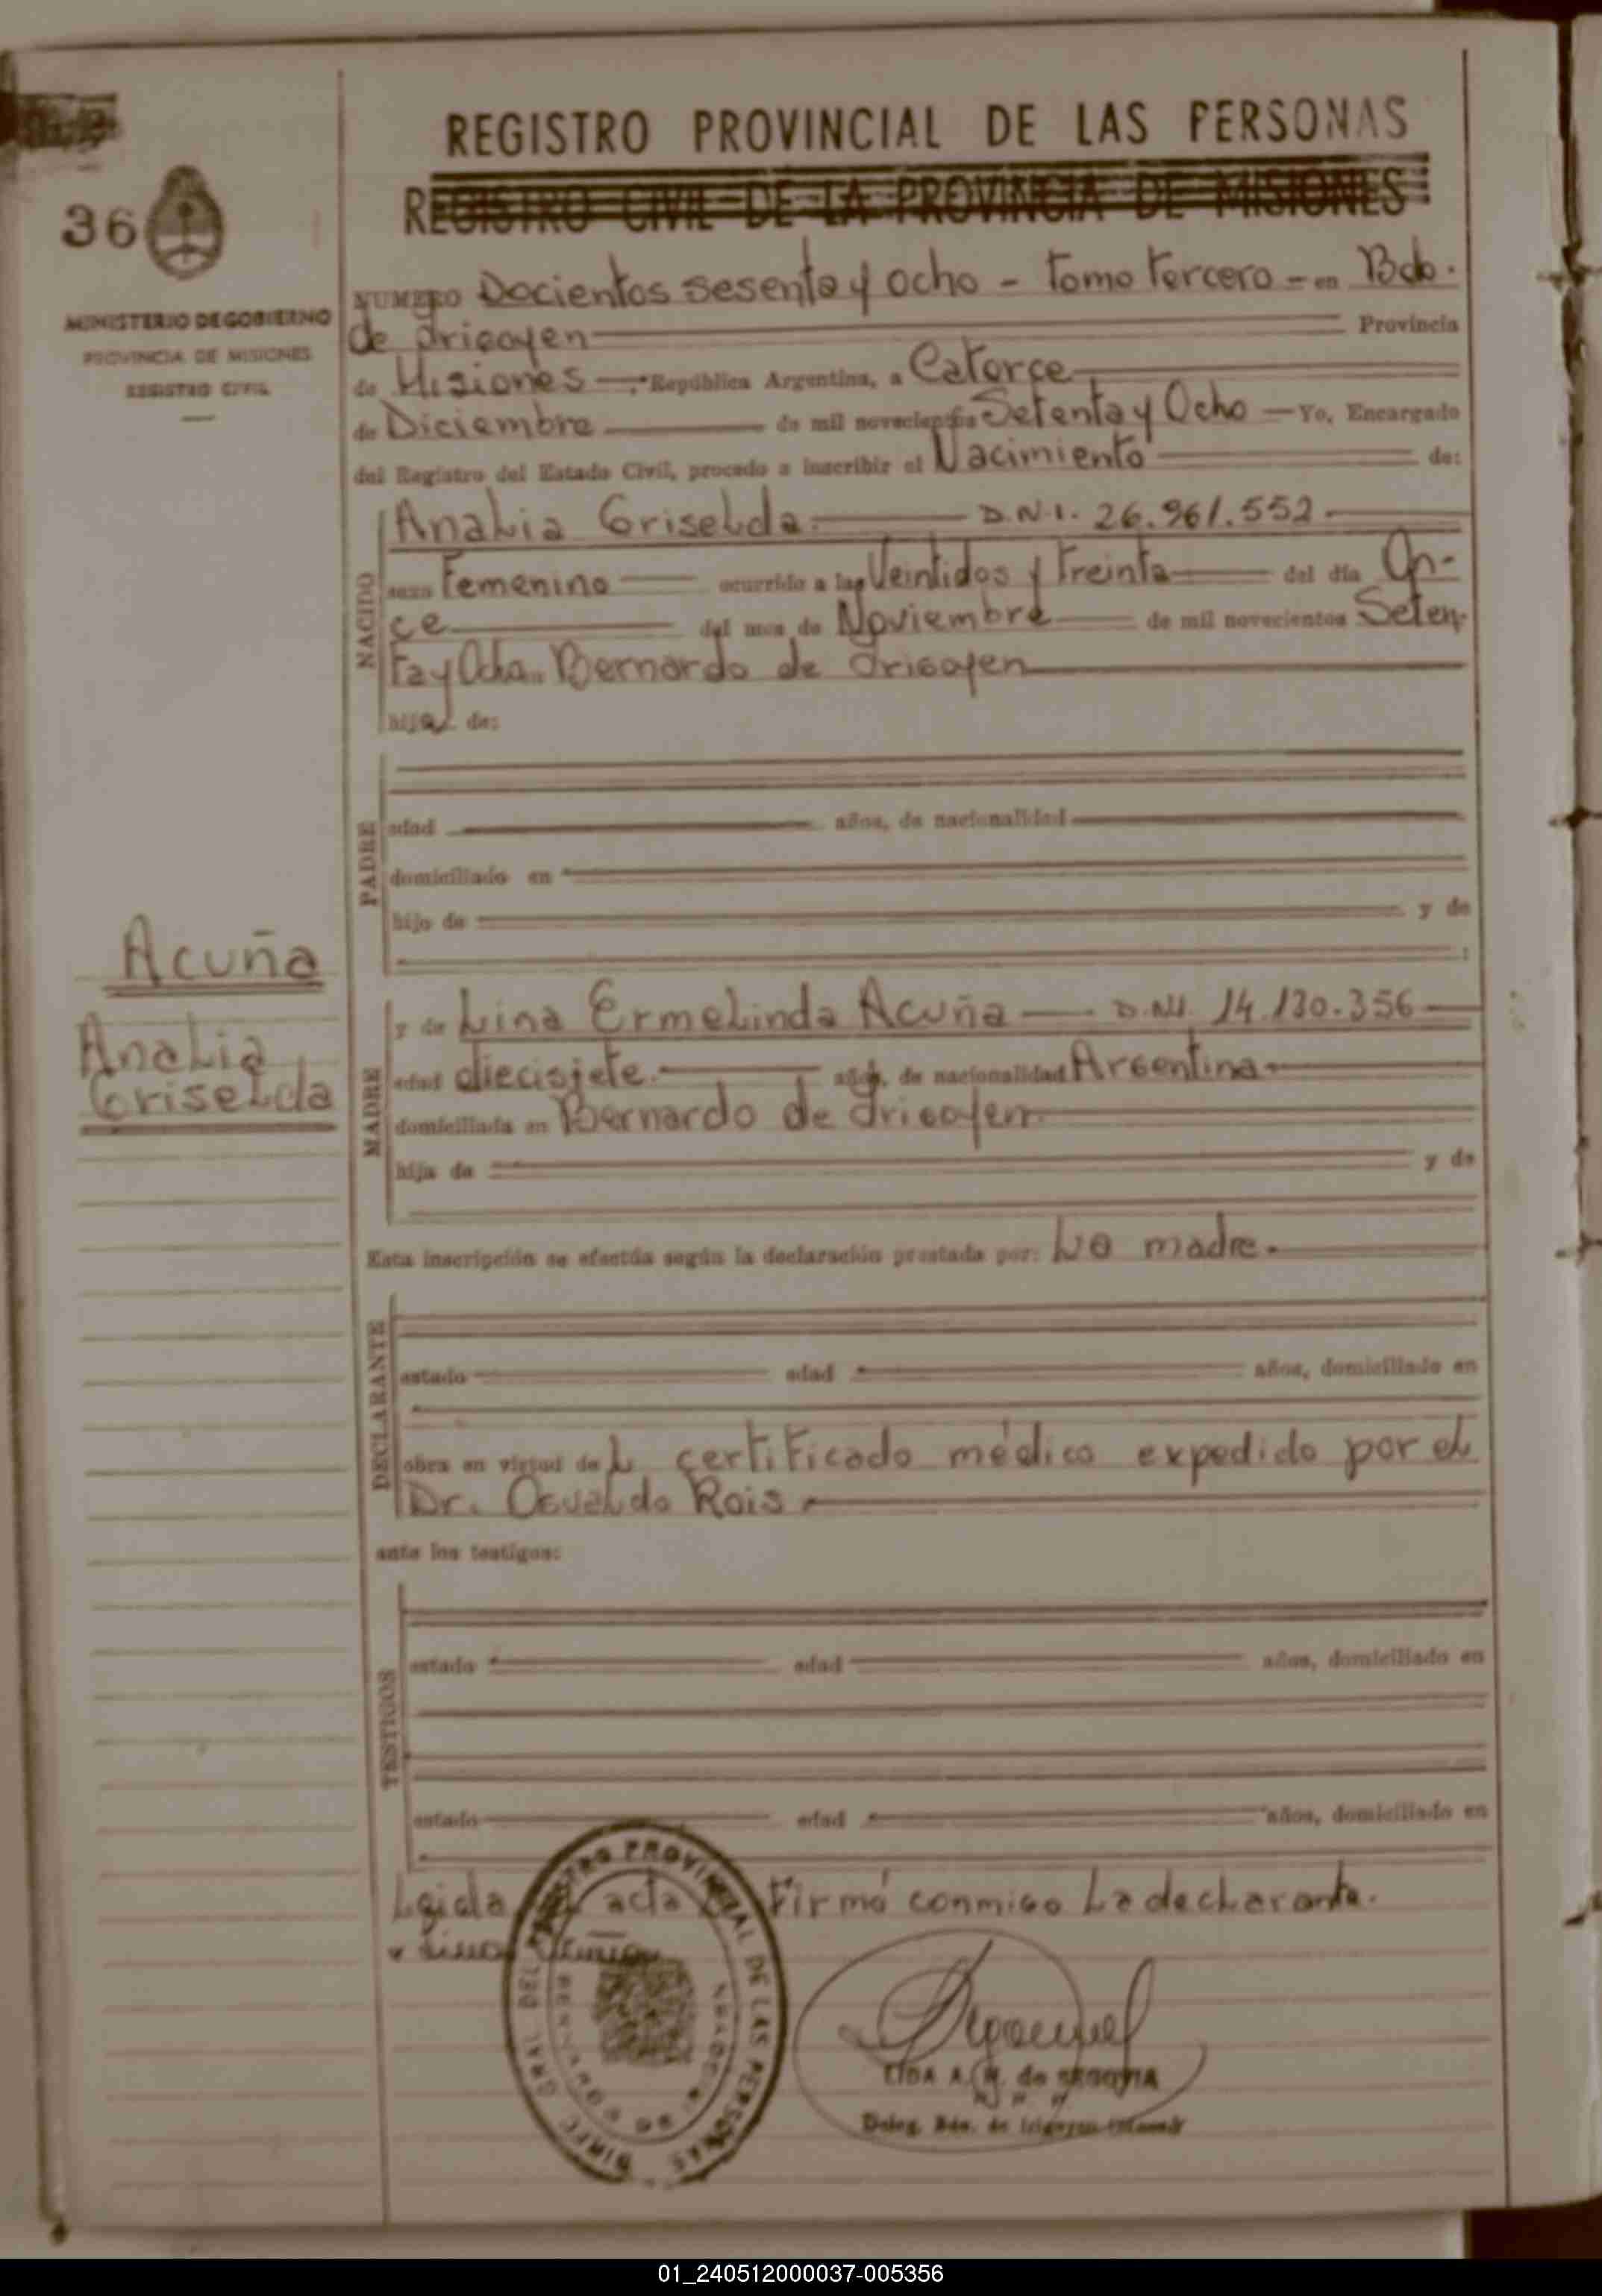 REGISTRO PROVINCIAL DE LAS PERSONAS
REGISTRO CIVIL DE LA PROVINCIA DE MISIONES
36
MINISTERIO DE GOBIERNO
PROVINCIA DE MISIONES
REGISTRO CIVIL
NUMERO Docientos sesenta y ocho - tomo tercero - en Bdo.
de Irigoyen Provincia
de Misiones República Argentina, a Catorce
de Diciembre de mil novecientos Setenta y Ocho - Yo, Encargado
del Registro del Estado Civil, procedo a inscribir el Nacimiento de:
NACIDO
Analia Griselda. D.N.I. 26.961.552
sexo Femenino ocurrido a las Veintidos y treinta del día On-
ce del mes de Noviembre de mil novecientos Seten-
ta y Ocho.. Bernardo de Irigoyen
hija de:
PADRE
edad años, de nacionalidad
domiciliado en
hijo de y de
Acuña
Analia
Griselda
MADRE
y de Lina Ermelinda Acuña D.N.I. 14.130.356
edad diecisiete. años, de nacionalidad Argentina.
domiciliada en Bernardo de Irigoyen.
hija de y de
Esta inscripción se efectúa según la declaración prestada por: La madre.
DECLARANTE
estado edad años, domiciliado en
obra en virtud del certificado médico expedido por el
Dr. Osvaldo Rois
ante los testigos:
TESTIGOS
estado edad años, domiciliado en
estado edad años, domiciliado en
Leida acta Firmó conmigo La declarante.
DIREC. GRAL. DEL REGISTRO PROVINCIAL DE LAS PERSONAS
LIDA A. de SEGOVIA
Deleg. Bdo. de Irigoyen
01_240512000037-005356